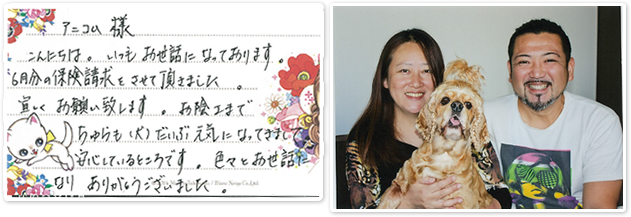 アニコム 様
こんにちは。いつも お世話に なっております。
6月分の保険請求を させて頂きました。
宜しく お願い致します。お陰さまで
ちゅらも(犬)だいぶ 元気に なってきまして
安心しているところです。色々と お世話に
なり ありがとうございました。